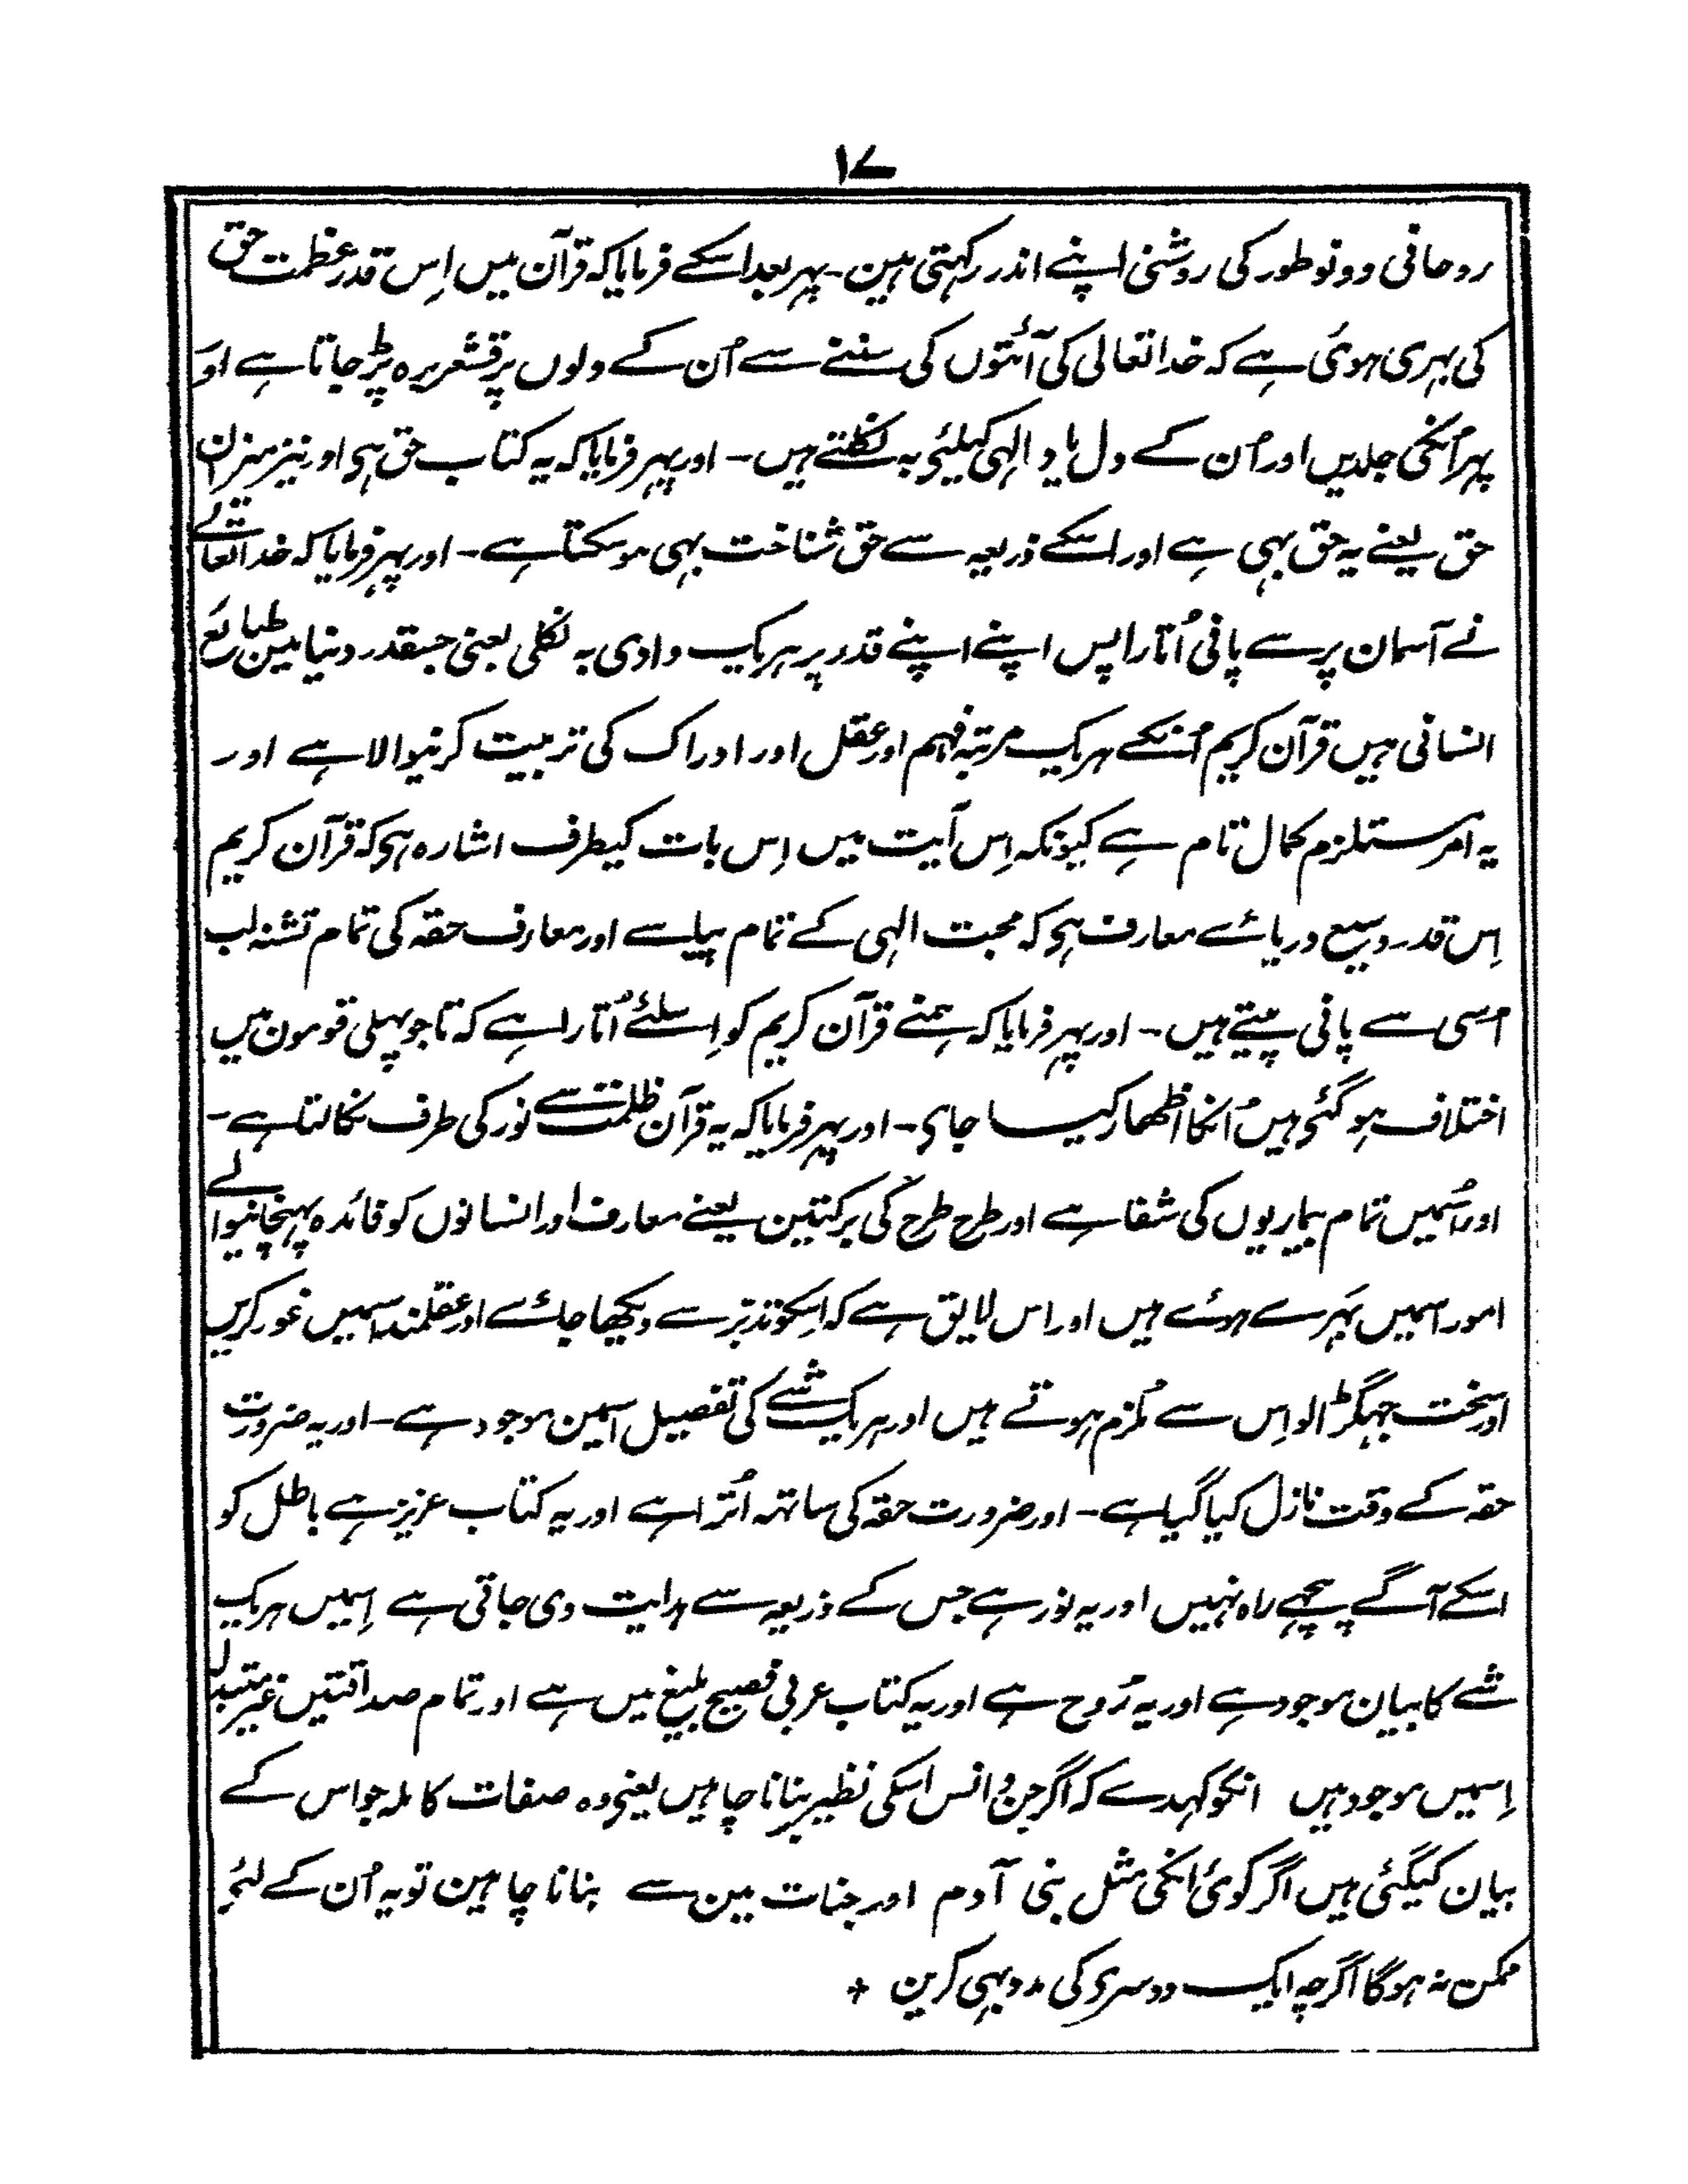 ۱۷
روحانی دونو طور کی روشنی اپنے اندر رکہتی ہین۔ پہر بعد اسکے فرمایا کہ قرآن میں اِس قدر عظمت حق
کی بہری ہوئی ہے کہ خدا تعالی کی آئتوں کی سننے سے اُن کے دلوں پر قشعریرہ پڑ جاتا ہے اور
پہر اُنکی جلدیں اور اُن کے دل یاد الٰہی کیلئے بہ نکلتے ہیں۔ اور پہر فرمایا کہ یہ کتاب حق ہی اور نیز میزان
حق یعنے یہ حق بہی ہے اور اسکے ذریعہ سے حق شناخت بہی ہو سکتا ہے۔ اور پہر فرمایا کہ خدا تعالے
نے آسمان پر سے پانی اُتارا پس اپنے اپنے قدر پر ہریک وادی بہ نکلی یعنی جسقدر دنیا مین طبائع
انسانی ہیں قرآن کریم اُنکے ہریک مرتبہ فہم اور عقل اور ادراک کی تربیت کرنیوالا ہے اور
یہ امر مستلزم کمال تام ہے کیونکہ اِس آیت میں اِس بات کیطرف اشارہ ہی کہ قرآن کریم
اِس قدر وسیع دریائے معارف ہی کہ محبت الٰہی کے تمام پیاسے اور معارف حقہ کی تمام تشنہ لب
اُسی سے پانی پیتے ہیں۔ اور پہر فرمایا کہ ہمنے قرآن کریم کو اِسلئے اُتارا ہے کہ تا جو پہلی قومون میں
اختلاف ہو گئی ہیں اُنکا اظہار کیا جای۔ اور پہر فرمایا کہ یہ قرآن ظلمت سے نور کی طرف نکالتا ہے۔
اور اُسمیں تمام بیماریوں کی شفا ہے اور طرح طرح کی برکتین یعنے معارف اور انسانوں کو فائدہ پہنچانیوالے
امور اسمیں بہرے ہوئے ہیں اور اس لایق ہے کہ اسکو تدبّر سے دیکھا جائے اور عقلمند اسمیں غور کریں
اور سخت جہگڑالو اِس سے مُلزم ہوتے ہیں اور ہریک شے کی تفصیل اسمین موجود ہے۔ اور یہ ضرورت
حقہ کے وقت نازل کیا گیا ہے۔ اور ضرورت حقہ کی ساتہہ اُترا ہے اور یہ کتاب عزیز ہے باطل کو
اسکے آگے پیچہے راہ نہیں اور یہ نور ہے جس کے ذریعہ سے ہدایت دی جاتی ہے اِسمیں ہریک
شے کا بیان موجود ہے اور یہ رُوح ہے اور یہ کتاب عربی فصیح بلیغ میں ہے اور تمام صداقتیں غیر متبدل
اِسمیں موجود ہیں انکو کہدے کہ اگر جن و انس اسکی نظیر بنانا چاہیں یعنی وہ صفات کاملہ جو اس کے
بیان کیگئی ہیں اگر کوئی انکی مثل بنی آدم اور جنات مین سے بنانا چاہین تو یہ اُن کے لئے
ممکن نہ ہوگا اگرچہ ایک دوسری کی مدد بہی کرین +